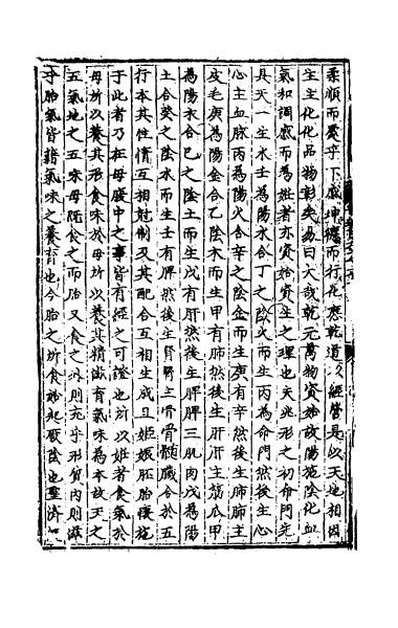 柔順而承乎下咸坤爐而行花應乾道以經營是以天地相因
生生化化品物彰矣易曰大哉乾元萬物資始故陽施陰化血
氣和調咸而為姙者亦資始資生之理也夫兆形之初命門先
具天一生水壬為陽水合丁之陰火而生丙為命門然後生心
心主血脉丙為陽火合辛之陰金而生庚有辛然後生肺肺主
皮毛庚為陽金合乙陰木而生甲有肺然後生肝肝主筋瓜甲
為陽木合巳之陰土而生戊有肝然後生脾脾三肌肉戊為陽
土合癸之陰水而生壬有脾然後生腎腎主骨骨髓臟合於五
行本其性情互相尅制又其配合互相生成且姙娠胚胎穫施
于此者乃在母腹中之事皆有經之可證也所以姙者食氣於
母所以養其形食味於母所以養其精滋有氣味為本故天之
五氣地之五味母旣食之而胎又食之外則充乎形質內則滋
乎胎氣皆藉氣味之養育也今胎之所食始起厥陰也聖濟